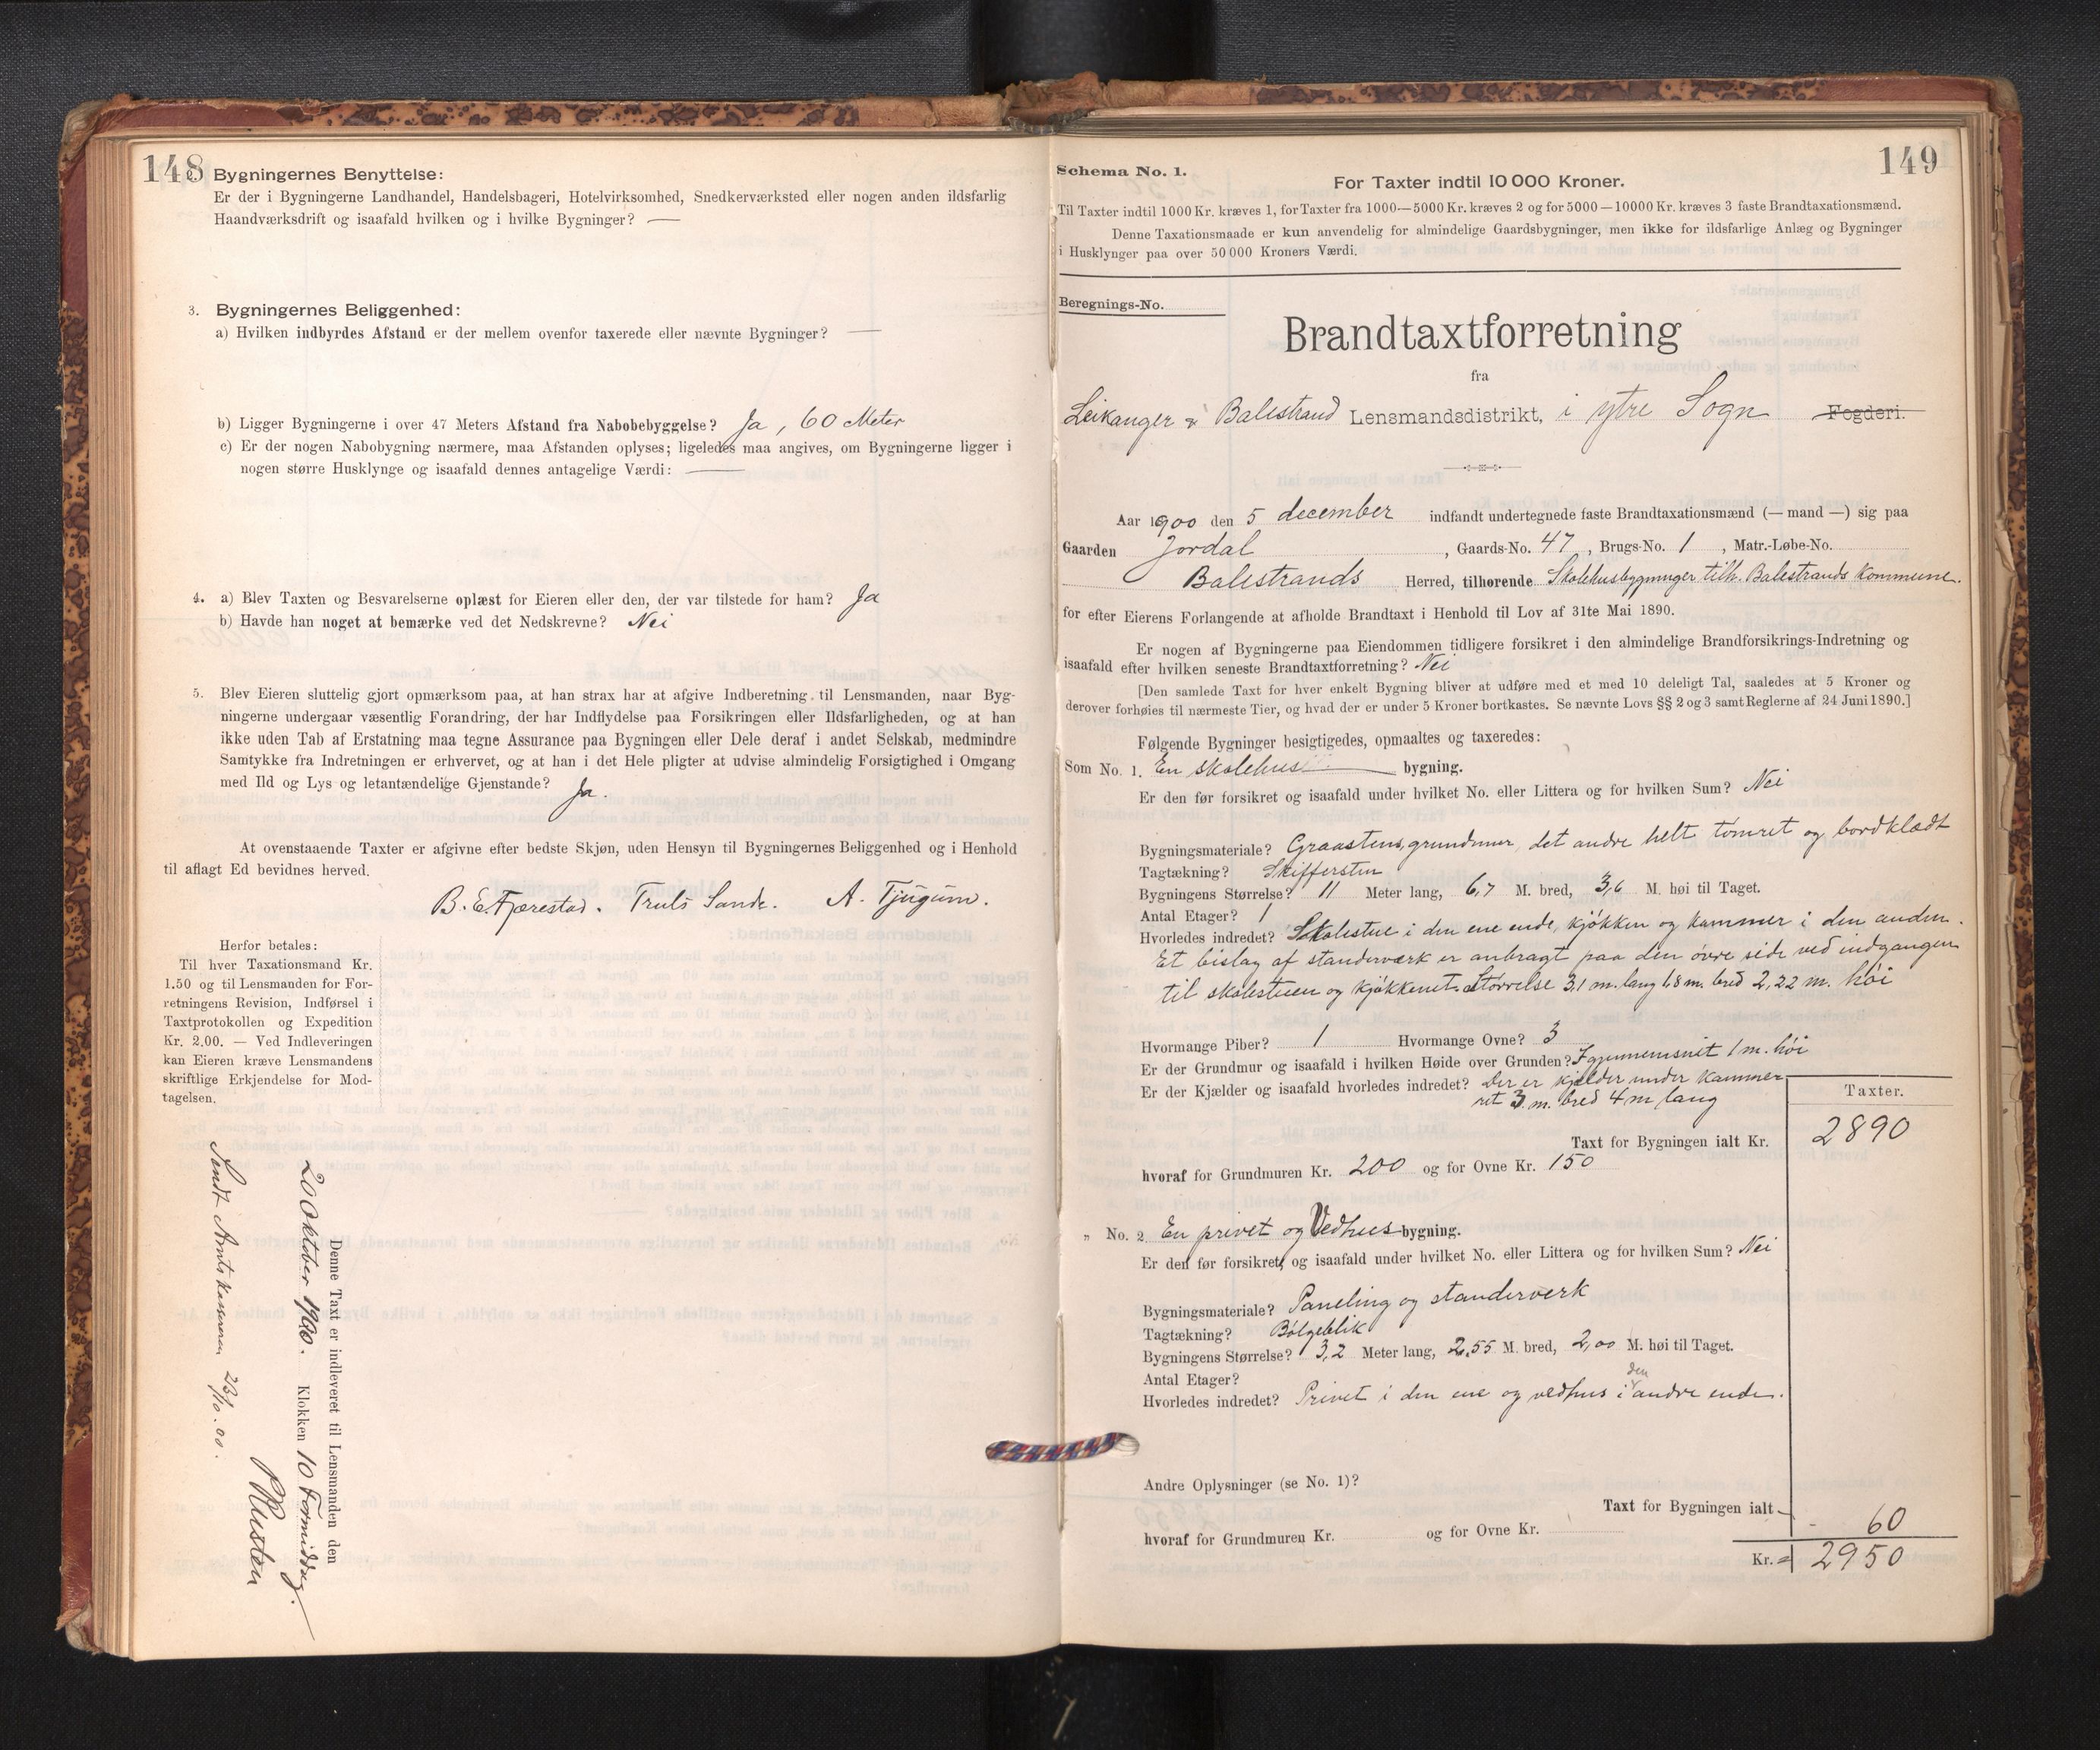 148
Bygningernes Benyttelse:
Er der i Bygningerne Landhandel, Handelsbageri, Hotelvirksomhed, Snedkerværksted eller nogen anden ildsfarlig
Haandværksdrift og isaafald hvilken og i hvilke Bygninger? —
3. Bygningernes Beliggenhed:
a) Hvilken indbyrdes Afstand er der mellem ovenfor taxerede eller nævnte Bygninger? —
b) Ligger Bygningerne i over 47 Meters Afstand fra Nabobebyggelse? Ja, 60 Meter
c) Er der nogen Nabobygning nærmere, maa Afstanden oplyses; ligeledes maa angives, om Bygningerne ligger i
nogen større Husklynge og isaafald dennes antagelige Værdi: —
4. a) Blev Taxten og Besvarelserne oplæst for Eieren eller den, der var tilstede for ham? Ja
b) Havde han noget at bemærke ved det Nedskrevne? Nei
5. Blev Eieren sluttelig gjort opmærksom paa, at han strax har at afgive Indberetning til Lensmanden, naar Byg-
ningerne undergaar væsentlig Forandring, der har Indflydelse paa Forsikringen eller Ildsfarligheden, og at han
ikke uden Tab af Erstatning maa tegne Assurance paa Bygningen eller Dele deraf i andet Selskab, medmindre
Samtykke fra Indretningen er erhvervet, og at han i det Hele pligter at udvise almindelig Forsigtighed i Omgang
med Ild og Lys og letantændelige Gjenstande? Ja.
At ovenstaaende Taxter er afgivne efter bedste Skjøn, uden Hensyn til Bygningernes Beliggenhed og i Henhold
til aflagt Ed bevidnes herved.
B. E. Fjærestad. Truls Sande. A. Tjugum.
Herfor betales:
Til hver Taxationsmand Kr.
1.50 og til Lensmanden for For-
retningens Revision, Indførsel i
Taxtprotokollen og Expedition
Kr. 2.00. — Ved Indleveringen
kan Eieren kræve Lensmandens
skriftlige Erkjendelse for Mod-
tagelsen.
Denne Taxt er indleveret til Lensmanden den
20 Oktober 1900. Klokken 10 Formiddag.
Sendt Amtskassereren 23/10.00.
149
Schema No. 1.
For Taxter indtil 10 000 Kroner.
Til Taxter indtil 1000 Kr. kræves 1, for Taxter fra 1000—5000 Kr. kræves 2 og for 5000—10000 Kr. kræves 3 faste Brandtaxationsmænd.
Denne Taxationsmaade er kun anvendelig for almindelige Gaardsbygninger, men ikke for ildsfarlige Anlæg og Bygninger
i Husklynger paa over 50 000 Kroners Værdi.
Beregnings-No.
Brandtaxtforretning
fra
Leikanger & Balestrand Lensmandsdistrikt, i ytre Sogn Fogderi.
Aar 1900 den 5 december indfandt undertegnede faste Brandtaxationsmænd (— mand —) sig paa
Gaarden Jordal, Gaards-No. 47, Brugs-No. 1, Matr.-Løbe-No.
Balestrands Herred, tilhørende Skolehusbygninger tilh. Balestrands Kommune.
for efter Eierens Forlangende at afholde Brandtaxt i Henhold til Lov af 31te Mai 1890.
Er nogen af Bygningerne paa Eiendommen tidligere forsikret i den almindelige Brandforsikrings-Indretning og
isaafald efter hvilken seneste Brandtaxtforretning? Nei
[Den samlede Taxt for hver enkelt Bygning bliver at udføre med et med 10 deleligt Tal, saaledes at 5 Kroner og
derover forhøies til nærmeste Tier, og hvad der er under 5 Kroner bortkastes. Se nævnte Lovs §§ 2 og 3 samt Reglerne af 24 Juni 1890.]
Følgende Bygninger besigtigedes, opmaaltes og taxeredes:
Som No. 1. En skolehus — bygning.
Er den før forsikret og isaafald under hvilket No. eller Littera og for hvilken Sum? Nei
Bygningsmateriale? Graastensgrundmur, det andre helt tømret og bordklædt
Tagtækning? Skiffersten
Bygningens Størrelse? 11 Meter lang, 6,7 M. bred, 3,6 M. høi til Taget.
Antal Etager? 1
Hvorledes indredet? Skolestue i den ene ende, kjøkken og kammer i den anden.
Et bislag af standerværk er anbragt paa den øvre side ved indgangen
til skolestuen og kjøkkenet. Størrelse 3,1 m. lang 1,8 m. bred 2,22 m. høi
Hvormange Piber? 1 Hvormange Ovne? 3
Er der Grundmur og isaafald i hvilken Høide over Grunden? I gjennemsnit 1 m. høi
Er der Kjælder og isaafald hvorledes indredet? Der er kjælder under kammer
ret 3 m. bred 4 m lang
Taxter.
Taxt for Bygningen ialt Kr. 2890
hvoraf for Grundmuren Kr. 200 og for Ovne Kr. 150
„ No. 2 En privet og Vedhus bygning.
Er den før forsikret, og isaafald under hvilket No. eller Littera og for hvilken Sum? Nei
Bygningsmateriale? Paneling og standerverk
Tagtækning? Bølgeblik
Bygningens Størrelse? 3,2 Meter lang, 2,55 M. bred, 2,00 M. høi til Taget.
Antal Etager?
den
Hvorledes indredet? Privet i den ene og vedhus i andre ende.
Andre Oplysninger (se No. 1)?
Taxt for Bygningen ialt - 60
hvoraf for Grundmuren Kr. og for Ovne Kr.
Kr. = 2950